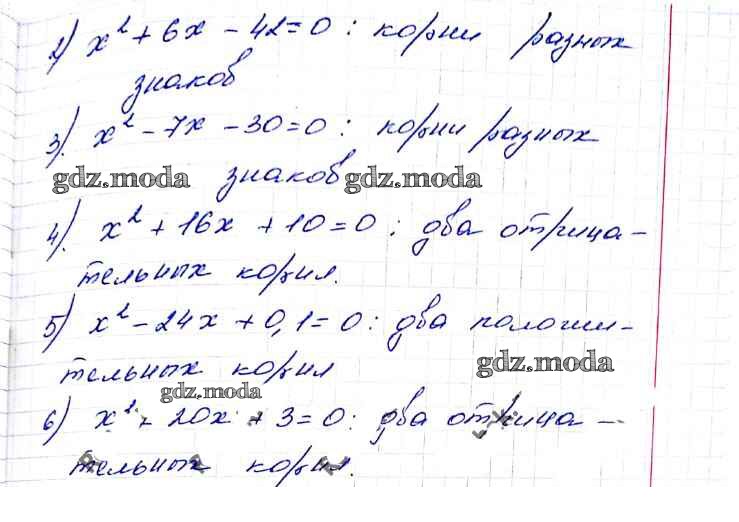 2) x² + 6x - 42 = 0 : корни разных
знаков
3). x² - 7x - 30 = 0 : корни разных
gdz.moda знаков gdz.moda
4). x² + 16x + 10 = 0 : два отрица-
тельных корня.
5) x² - 24x + 0,1 = 0 : два положи-
gdz.moda
тельных корня
gdz.moda
6) x² - 20x + 3 = 0 : два отрица-
тельных корня.